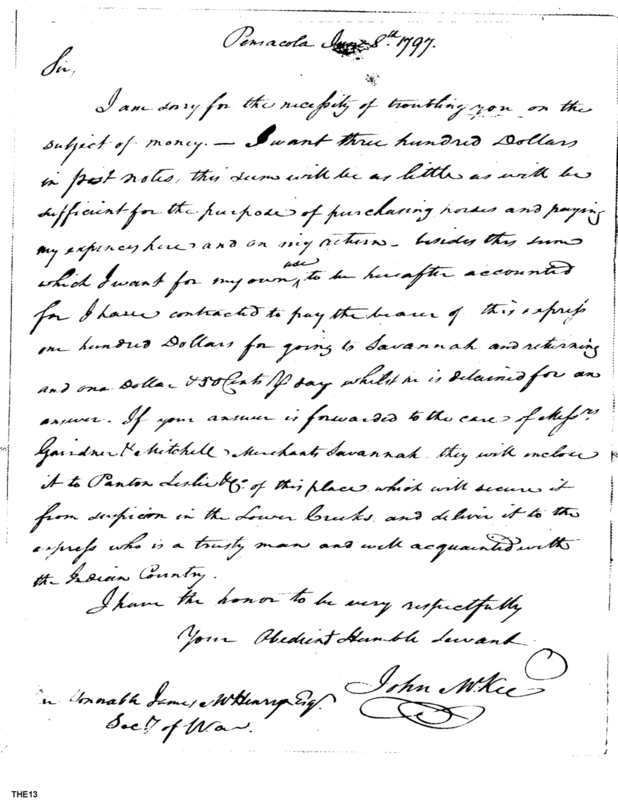 Pensacola June 8th 1797.
Sir,
I am sorry for the necessity of troubling you on the
subject of money. — I want three hundred Dollars
in post notes, this sum will be as little as will be
sufficient for the purpose of purchasing horses and paying
my expences here and on my return – besides this sum
which I want for my own use, to be hereafter accounted
for I have contracted to pay the bearer of this express
one hundred Dollars for going to Savannah and returning
and one Dollar & 50 Cents P day whilst he is detained for an
answer. If your answer is forwarded to the care of Messrs
Gairdner & Mitchell Merchants Savannah they will inclose
it to Panton Leslie & Co of this place which will secure it
from suspicion in the Lower Creeks and deliver it to the
express who is a trusty man and well acquainted with
the Indian Country.
I have the honor to be very respectfully
Your Obedient Humble Servant
John McKee
Honorable James McHenry Esqr
Secy of War.
THE13